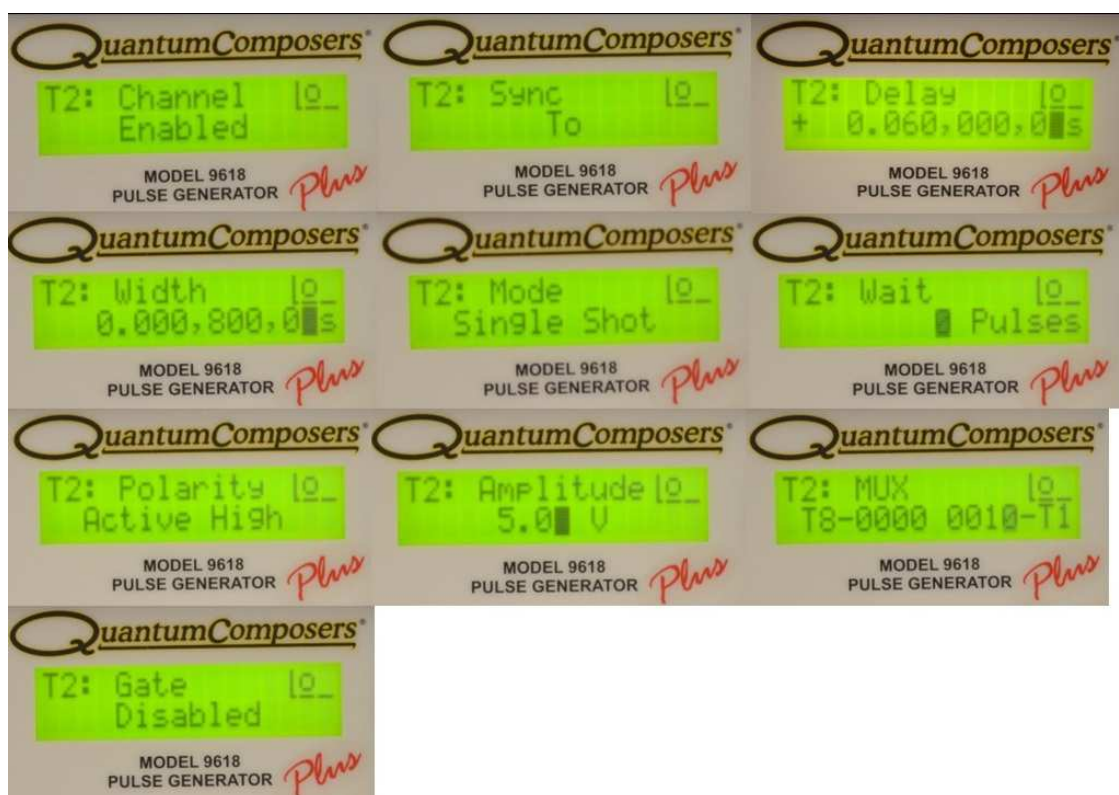 QuantumComposers
T2: Channel
Enabled
MODEL 9618
PULSE GENERATOR Plus
QuantumComposers
T2: Sync
To
MODEL 9618
PULSE GENERATOR Plus
QuantumComposers
T2: Delay
+ 0.060,000,0 s
MODEL 9618
PULSE GENERATOR Plus
QuantumComposers
T2: Width
0.000,800,0 s
MODEL 9618
PULSE GENERATOR Plus
QuantumComposers
T2: Mode
Single Shot
MODEL 9618
PULSE GENERATOR Plus
QuantumComposers
T2: Wait
0 Pulses
MODEL 9618
PULSE GENERATOR Plus
QuantumComposers
T2: Polarity
Active High
MODEL 9618
PULSE GENERATOR Plus
QuantumComposers
T2: Amplitude
5.0 V
MODEL 9618
PULSE GENERATOR Plus
QuantumComposers
T2: MUX
T8-0000 0010-T1
MODEL 9618
PULSE GENERATOR Plus
QuantumComposers
T2: Gate
Disabled
MODEL 9618
PULSE GENERATOR Plus